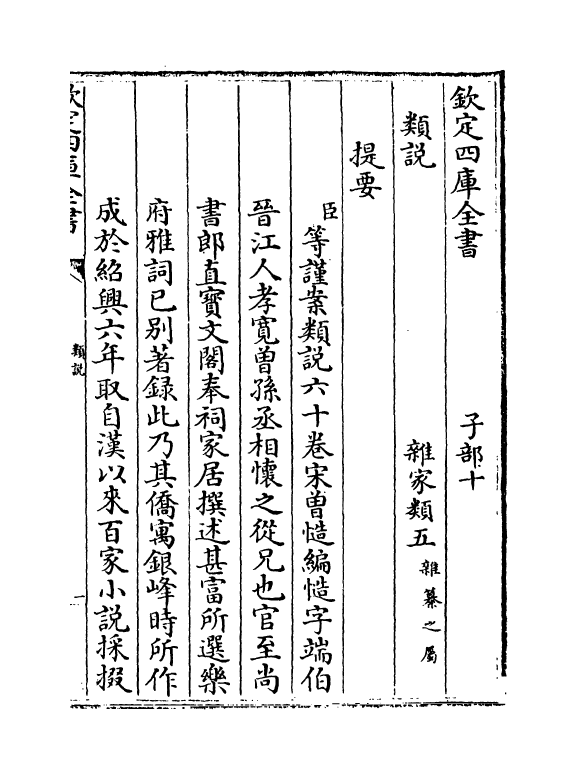 欽定四庫全書　子部十
類說　雜家類五 雜纂之屬
提要
臣等謹案類說六十卷宋曾慥編慥字端伯
晉江人孝寬曾孫丞相懷之從兄也官至尚
書郎直寳文閣奉祠家居撰述甚富所選樂
府雅詞已别著録此乃其僑寓銀峰時所作
成於紹興六年取自漢以來百家小說採掇
欽定四庫全書
類說
一